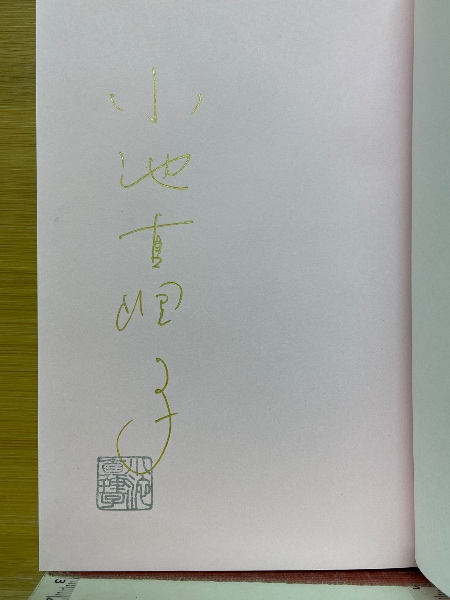 小池真理子
小池真理子